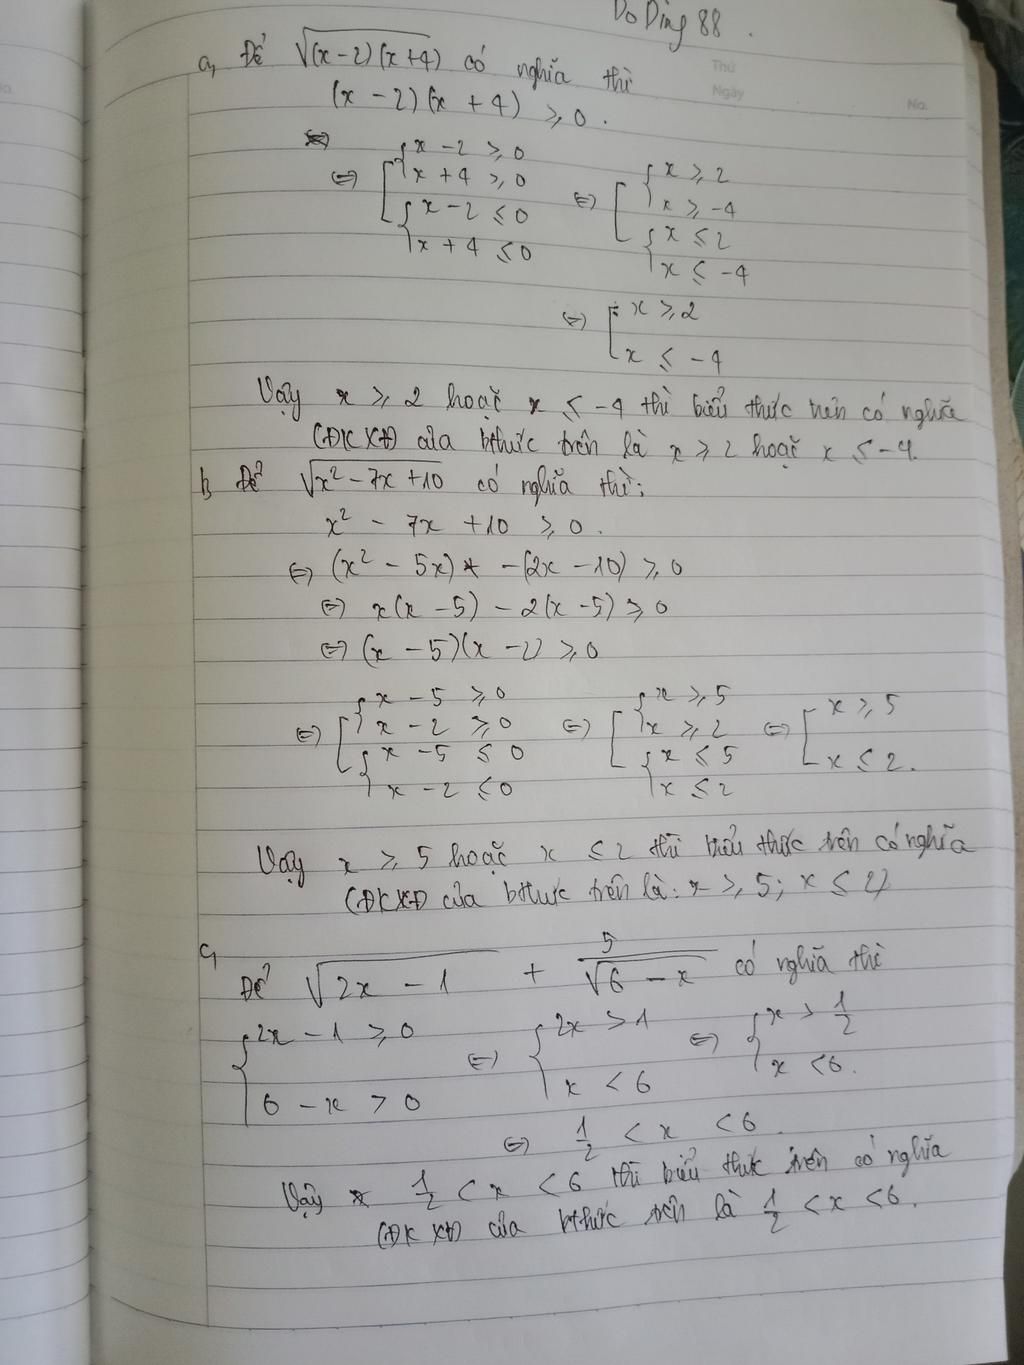 Do Ding 88.
Thứ
Ngày
No.
a, Để √(x-2)(x+4) có nghĩa thì
(x - 2)(x + 4) ≥ 0.
⇔ [ { x - 2 ≥ 0
x + 4 ≥ 0
{ x - 2 ≤ 0
x + 4 ≤ 0
⇔ [ { x ≥ 2
x ≥ -4
{ x ≤ 2
x ≤ -4
⇔ [ x ≥ 2
x ≤ -4
Vậy x ≥ 2 hoặc x ≤ -4 thì biểu thức trên có nghĩa
(ĐKXĐ) của bthức trên là x ≥ 2 hoặc x ≤ -4.
b, Để √x² - 7x + 10 có nghĩa thì:
x² - 7x + 10 ≥ 0.
⇔ (x² - 5x) - (2x - 10) ≥ 0
⇔ x(x - 5) - 2(x - 5) ≥ 0
⇔ (x - 5)(x - 2) ≥ 0
⇔ [ { x - 5 ≥ 0
x - 2 ≥ 0
{ x - 5 ≤ 0
x - 2 ≤ 0
⇔ [ { x ≥ 5
x ≥ 2
{ x ≤ 5
x ≤ 2
⇔ [ x ≥ 5
x ≤ 2.
Vậy x ≥ 5 hoặc x ≤ 2 thì biểu thức trên có nghĩa
(ĐKXĐ) của bthức trên là: x ≥ 5; x ≤ 2)
c,
Để √2x - 1 + 5/√6 - x có nghĩa thì
{ 2x - 1 ≥ 0
6 - x > 0
⇔ { 2x > 1
x < 6
⇔ { x > 1/2
x < 6.
⇔ 1/2 < x < 6.
Vậy 1/2 < x < 6 thì biểu thức trên có nghĩa
(ĐKXĐ) của bthức trên là 1/2 < x < 6.